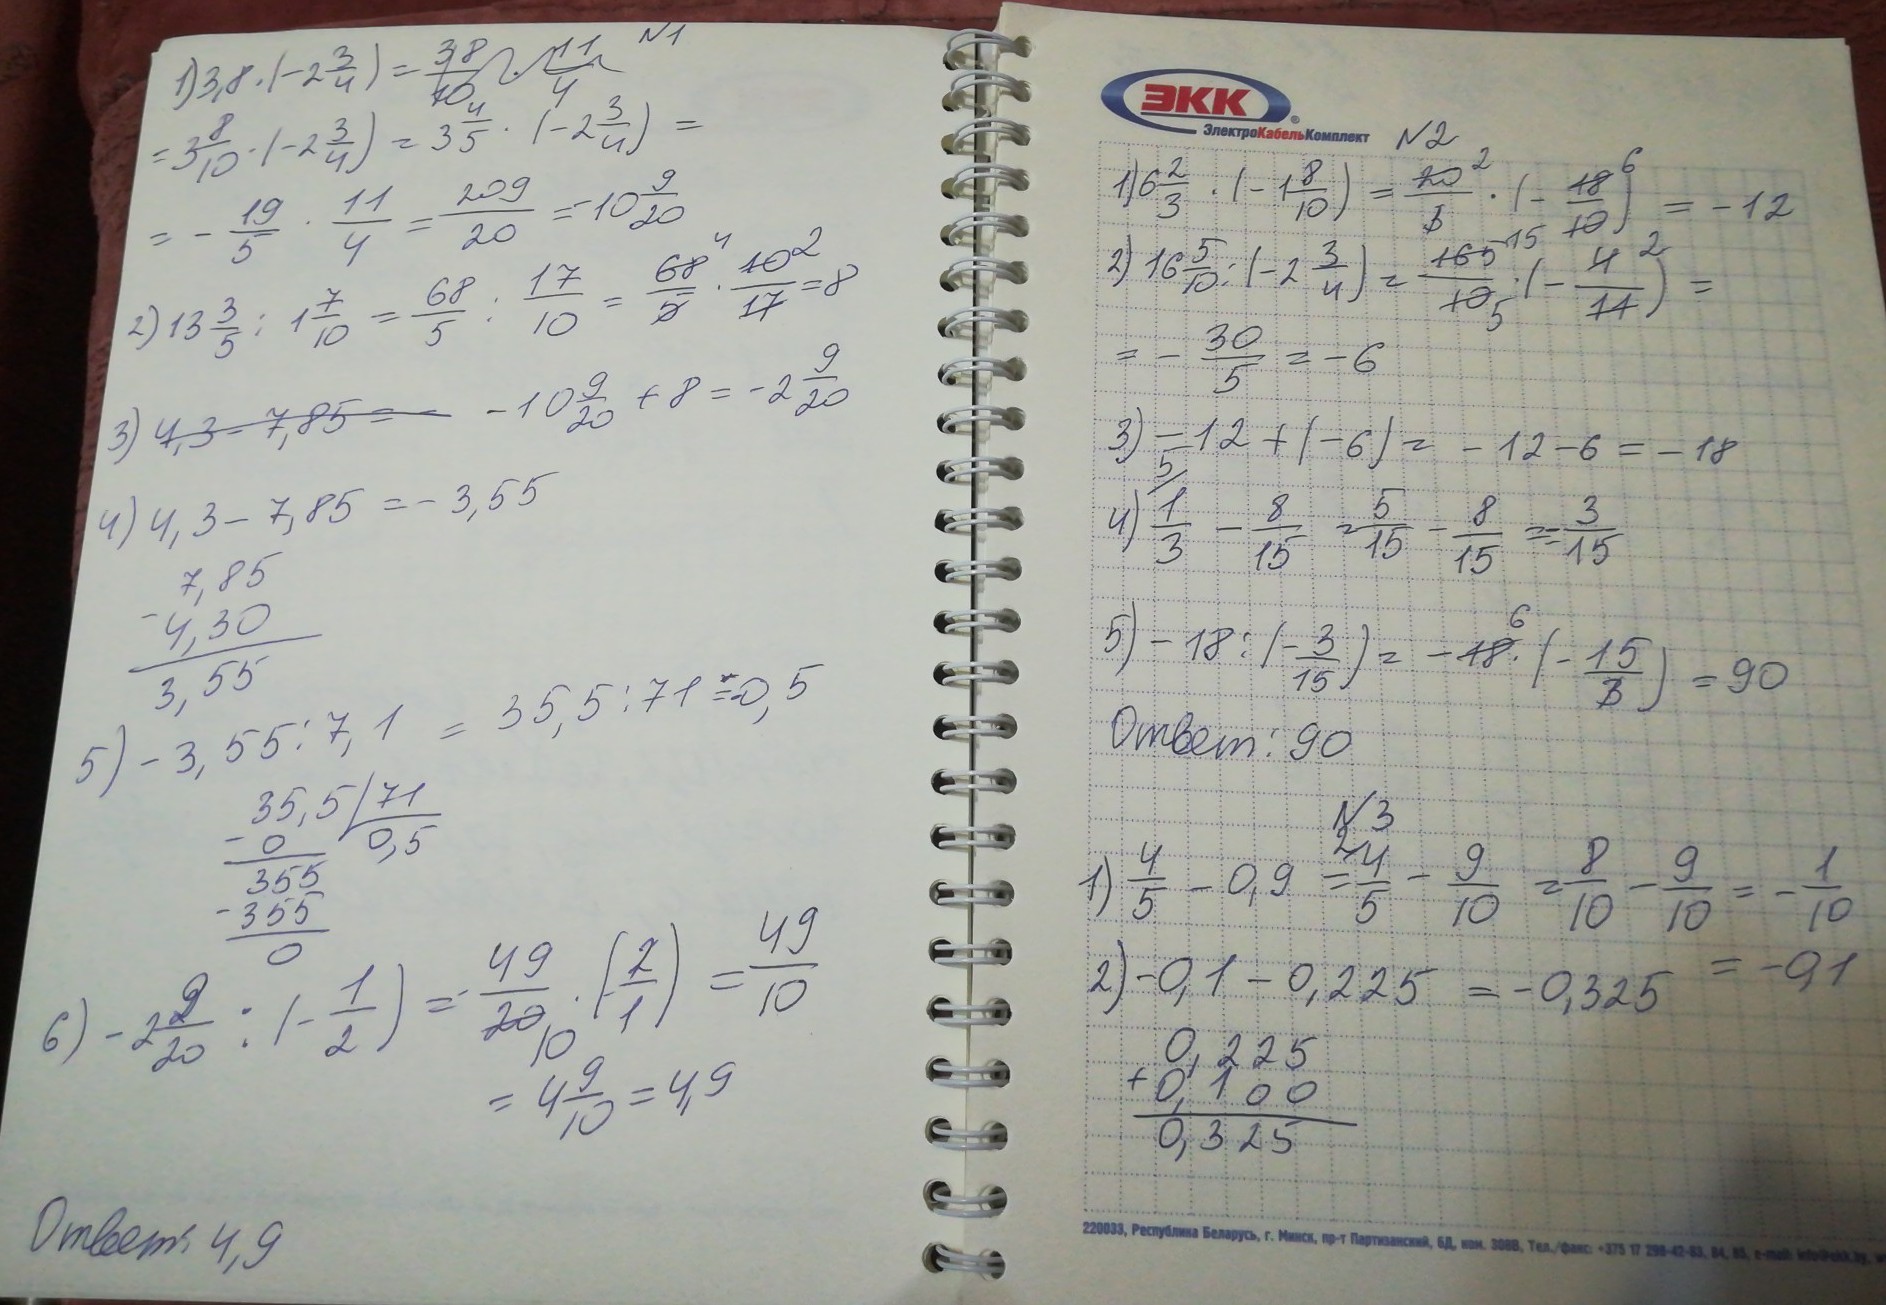 N1
1) 3,8 · (-2 3/4) = 38/10 · 11/4
= 3 8/10 · (-2 3/4) = 3 4/5 · (-2 3/4) =
= - 19/5 · 11/4 = 209/20 = -10 9/20
2) 13 3/5 : 1 7/10 = 68/5 : 17/10 = 68/5 4 · 10/17 2 = 8
3) 4,3 - 7,85 = - -10 9/20 + 8 = -2 9/20
4) 4,3 - 7,85 = -3,55
7,85
- 4,30
3,55
5) -3,55 : 7,1 = 35,5 : 71 = -0,5
35,5 | 71
- 0 0,5
355
- 355
0
6) -2 9/20 : (- 1/2) = - 49/20 10 · (- 2/1) = 49/10
= 4 9/10 = 4,9
Ответ: 4,9
ЭКК
®
ЭлектроКабельКомплект
N2
1) 6 2/3 · (-1 8/10) = 20/3 2 · (- 18/10 6) = -12
2) 16 5/10 : (-2 3/4) = 165/10 15 5 · (- 4/11 2) =
= - 30/5 = -6
3) -12 + (-6) = -12 - 6 = -18
4) 5/ 1/3 - 8/15 = 5/15 - 8/15 = - 3/15
5) -18 : (- 3/15) = -18 6 · (- 15/3) = 90
Ответ: 90
N3
1) 4/5 - 0,9 = 2/ 4/5 - 9/10 = 8/10 - 9/10 = - 1/10
= -0,1
2) -0,1 - 0,225 = -0,325
0,225
+ 0,100
0,325
220033, Республика Беларусь, г. Минск, пр-т Партизанский, 6Д, ком. 308В, Тел./факс: +375 17 298-42-83, 84, 85, e-mail: info@ekk.by,